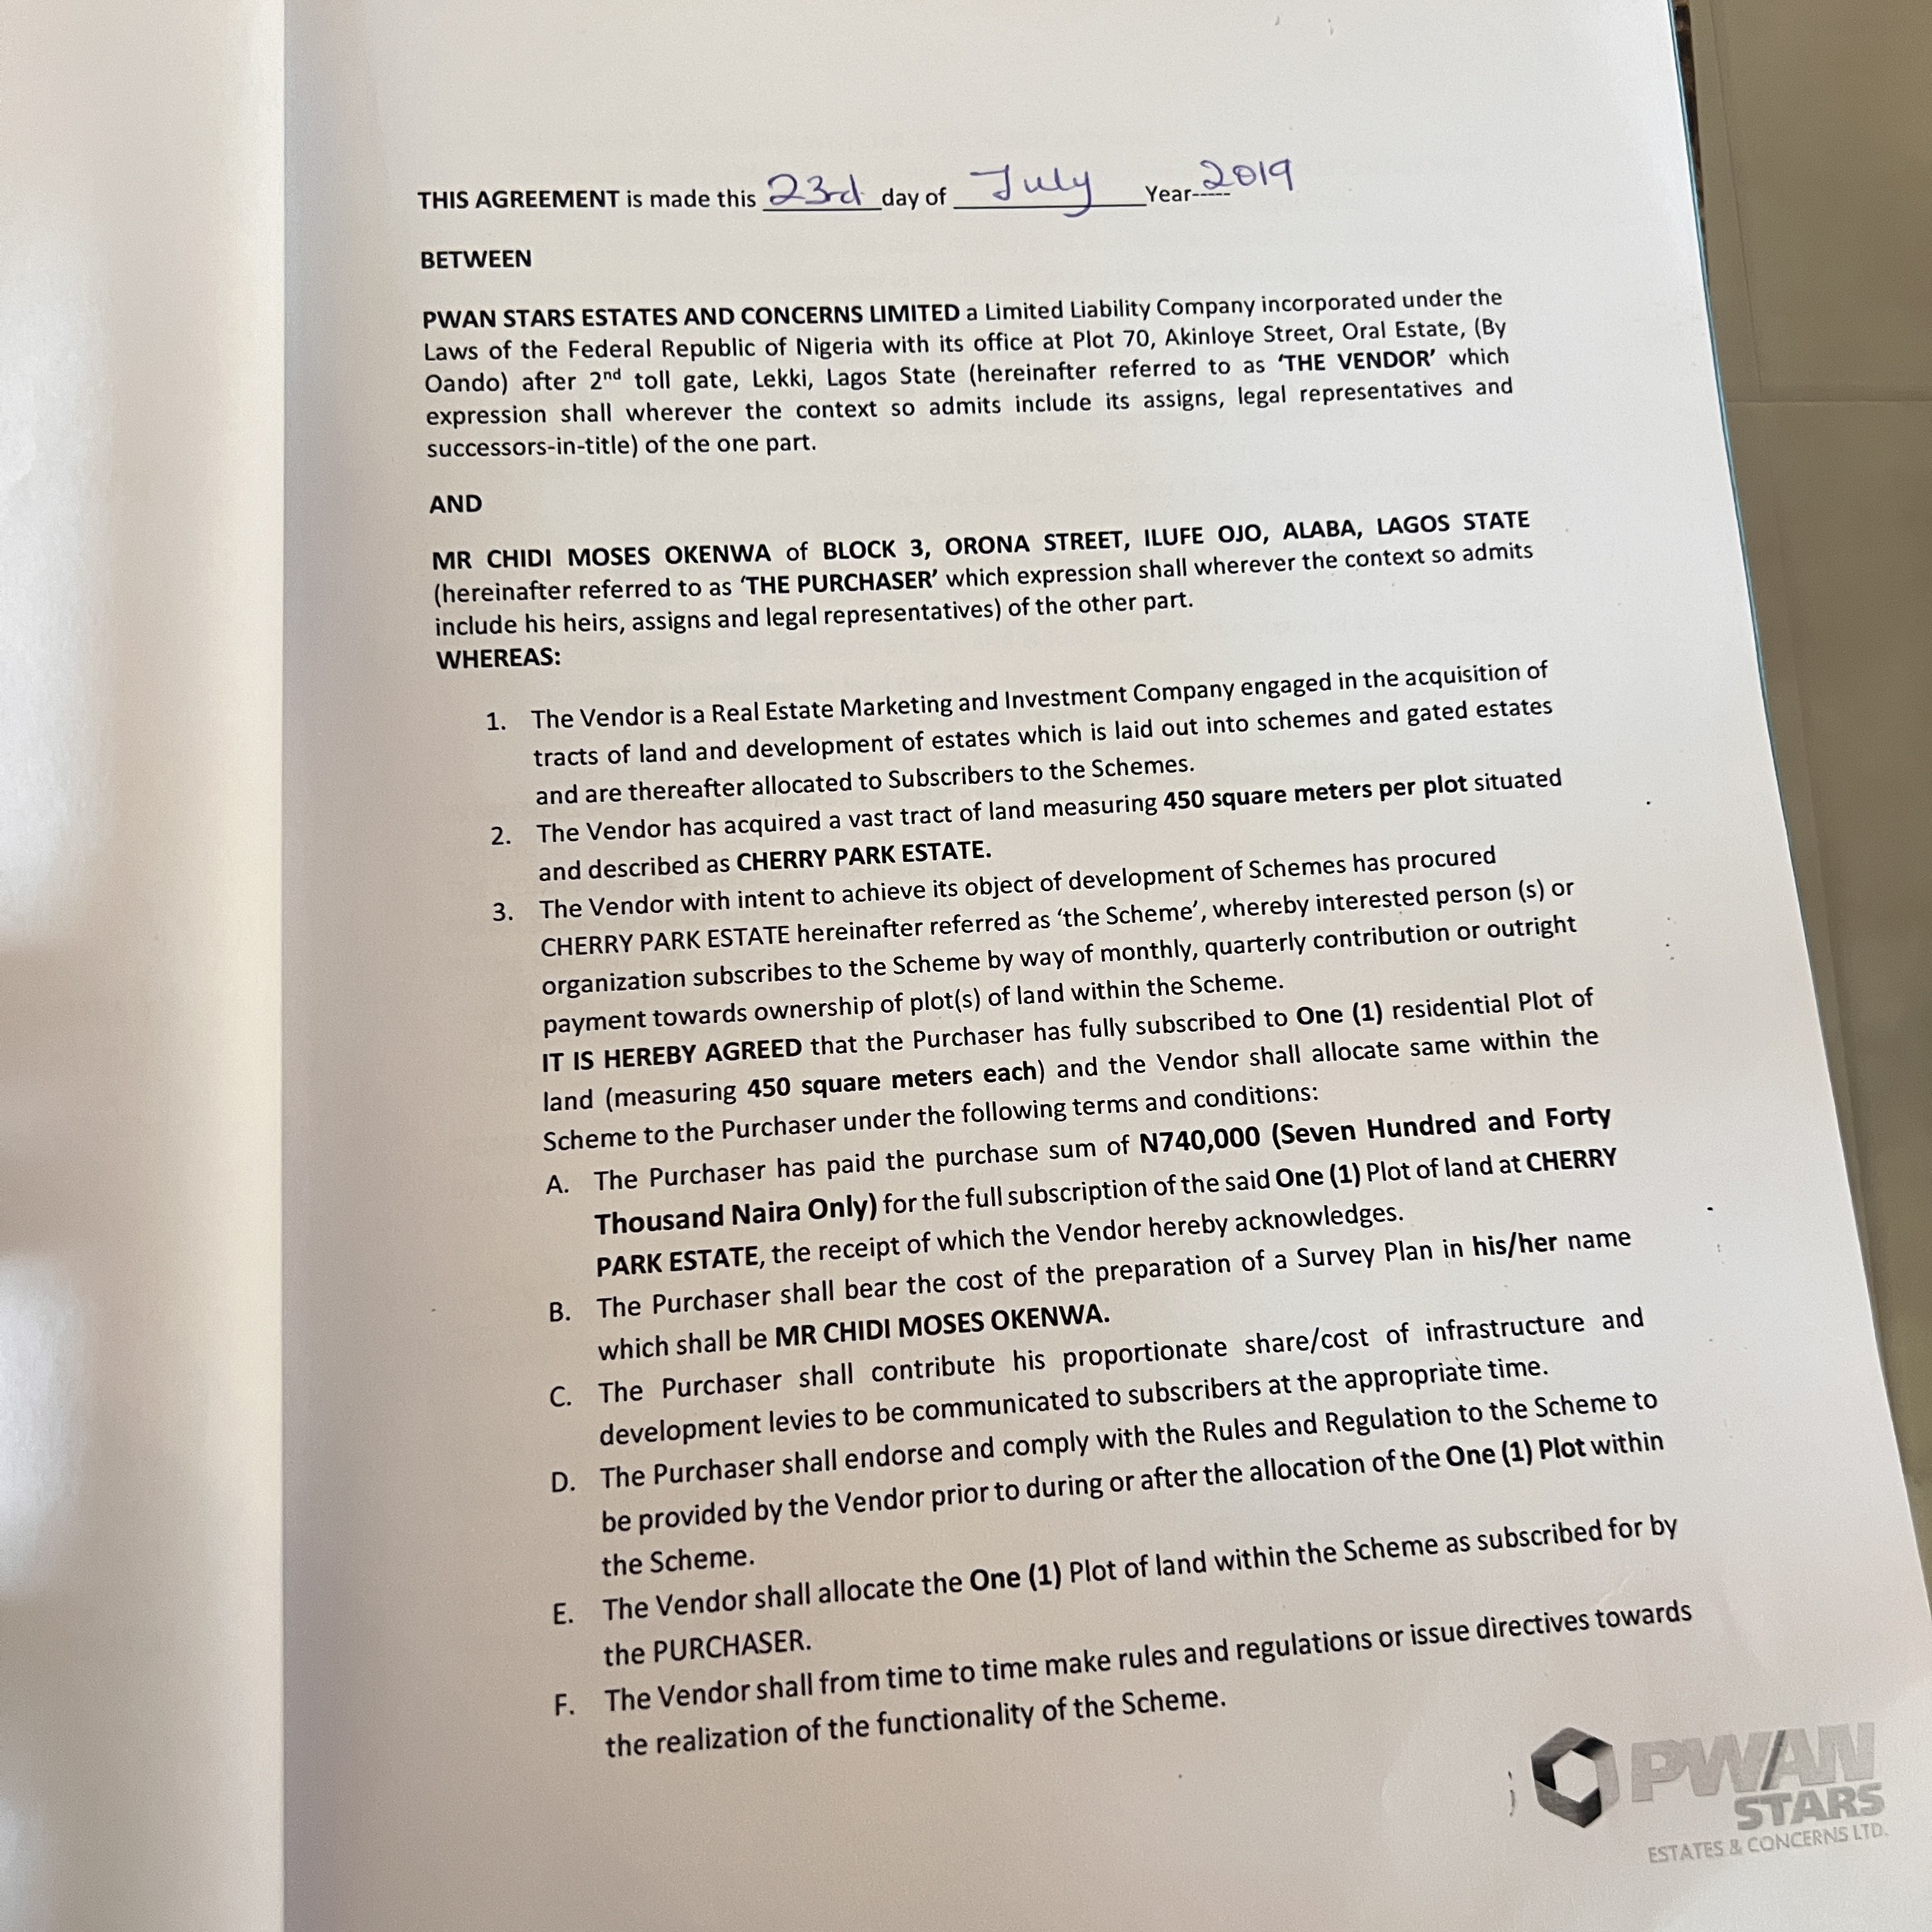 THIS AGREEMENT is made this 23rd day of July Year-----2019
BETWEEN
PWAN STARS ESTATES AND CONCERNS LIMITED a Limited Liability Company incorporated under the
Laws of the Federal Republic of Nigeria with its office at Plot 70, Akinloye Street, Oral Estate, (By
Oando) after 2nd toll gate, Lekki, Lagos State (hereinafter referred to as ‘THE VENDOR’ which
expression shall wherever the context so admits include its assigns, legal representatives and
successors-in-title) of the one part.
AND
MR CHIDI MOSES OKENWA of BLOCK 3, ORONA STREET, ILUFE OJO, ALABA, LAGOS STATE
(hereinafter referred to as ‘THE PURCHASER’ which expression shall wherever the context so admits
include his heirs, assigns and legal representatives) of the other part.
WHEREAS:
1. The Vendor is a Real Estate Marketing and Investment Company engaged in the acquisition of
tracts of land and development of estates which is laid out into schemes and gated estates
and are thereafter allocated to Subscribers to the Schemes.
2. The Vendor has acquired a vast tract of land measuring 450 square meters per plot situated
and described as CHERRY PARK ESTATE.
3. The Vendor with intent to achieve its object of development of Schemes has procured
CHERRY PARK ESTATE hereinafter referred as ‘the Scheme’, whereby interested person (s) or
organization subscribes to the Scheme by way of monthly, quarterly contribution or outright
payment towards ownership of plot(s) of land within the Scheme.
IT IS HEREBY AGREED that the Purchaser has fully subscribed to One (1) residential Plot of
land (measuring 450 square meters each) and the Vendor shall allocate same within the
Scheme to the Purchaser under the following terms and conditions:
A. The Purchaser has paid the purchase sum of N740,000 (Seven Hundred and Forty
Thousand Naira Only) for the full subscription of the said One (1) Plot of land at CHERRY
PARK ESTATE, the receipt of which the Vendor hereby acknowledges.
B. The Purchaser shall bear the cost of the preparation of a Survey Plan in his/her name
which shall be MR CHIDI MOSES OKENWA.
C. The Purchaser shall contribute his proportionate share/cost of infrastructure and
development levies to be communicated to subscribers at the appropriate time.
D. The Purchaser shall endorse and comply with the Rules and Regulation to the Scheme to
be provided by the Vendor prior to during or after the allocation of the One (1) Plot within
the Scheme.
E. The Vendor shall allocate the One (1) Plot of land within the Scheme as subscribed for by
the PURCHASER.
F. The Vendor shall from time to time make rules and regulations or issue directives towards
the realization of the functionality of the Scheme.
PWAN
STARS
ESTATES & CONCERNS LTD.